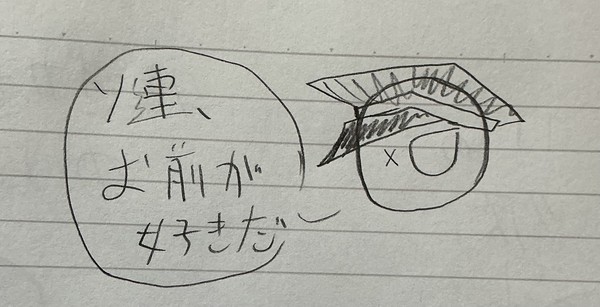 ソ連、
お前が
好きだ